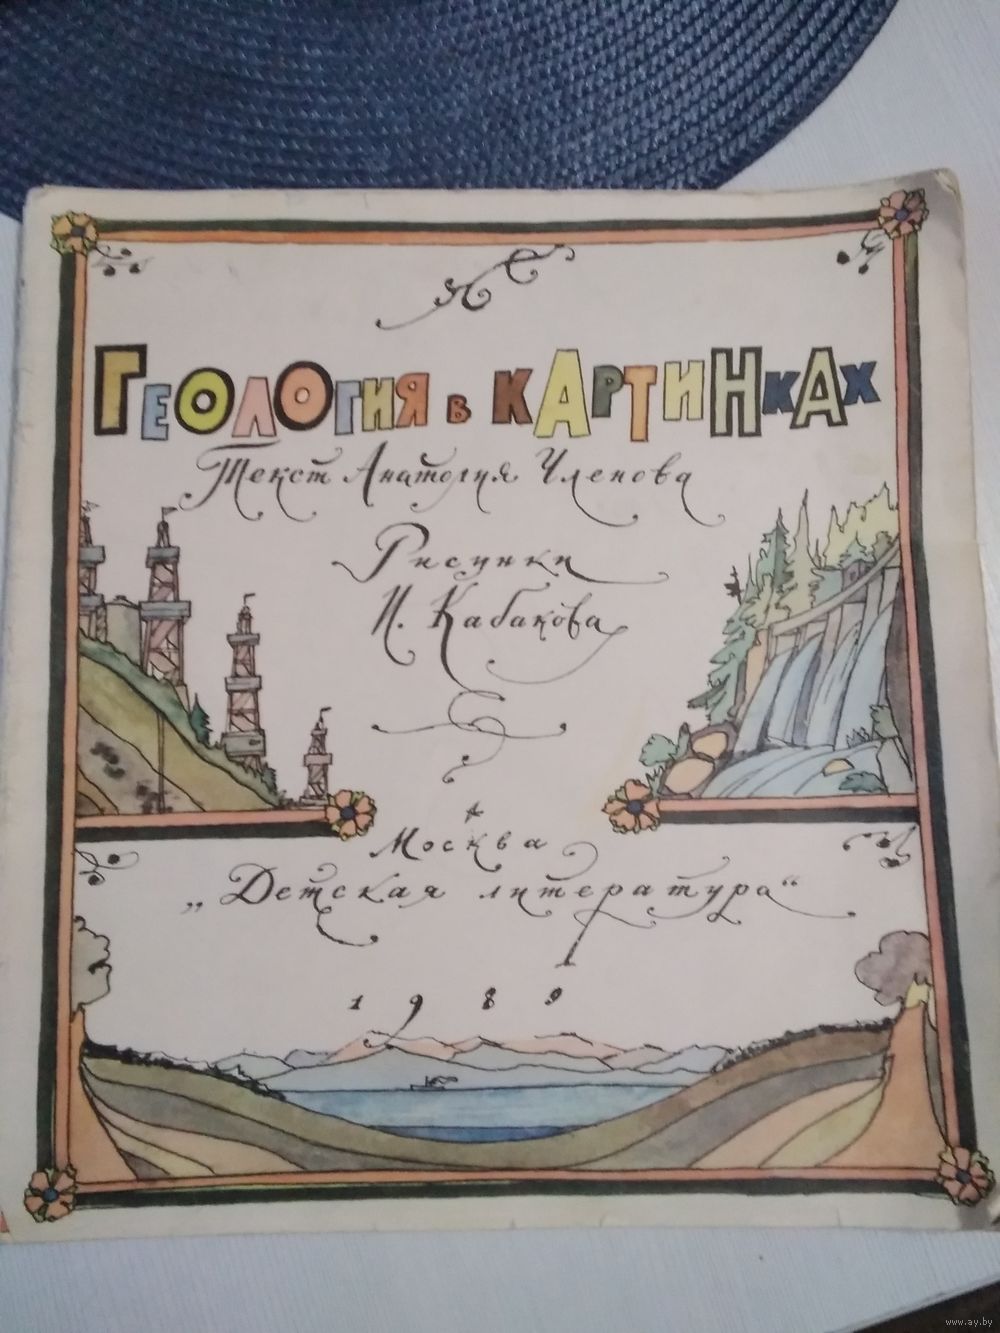 ГЕОЛОГИЯ в КАРТИНКАХ
Текст Анатолия Членова
Рисунки
И. Кабакова
Москва
„Детская литература“
1989
www.ay.by